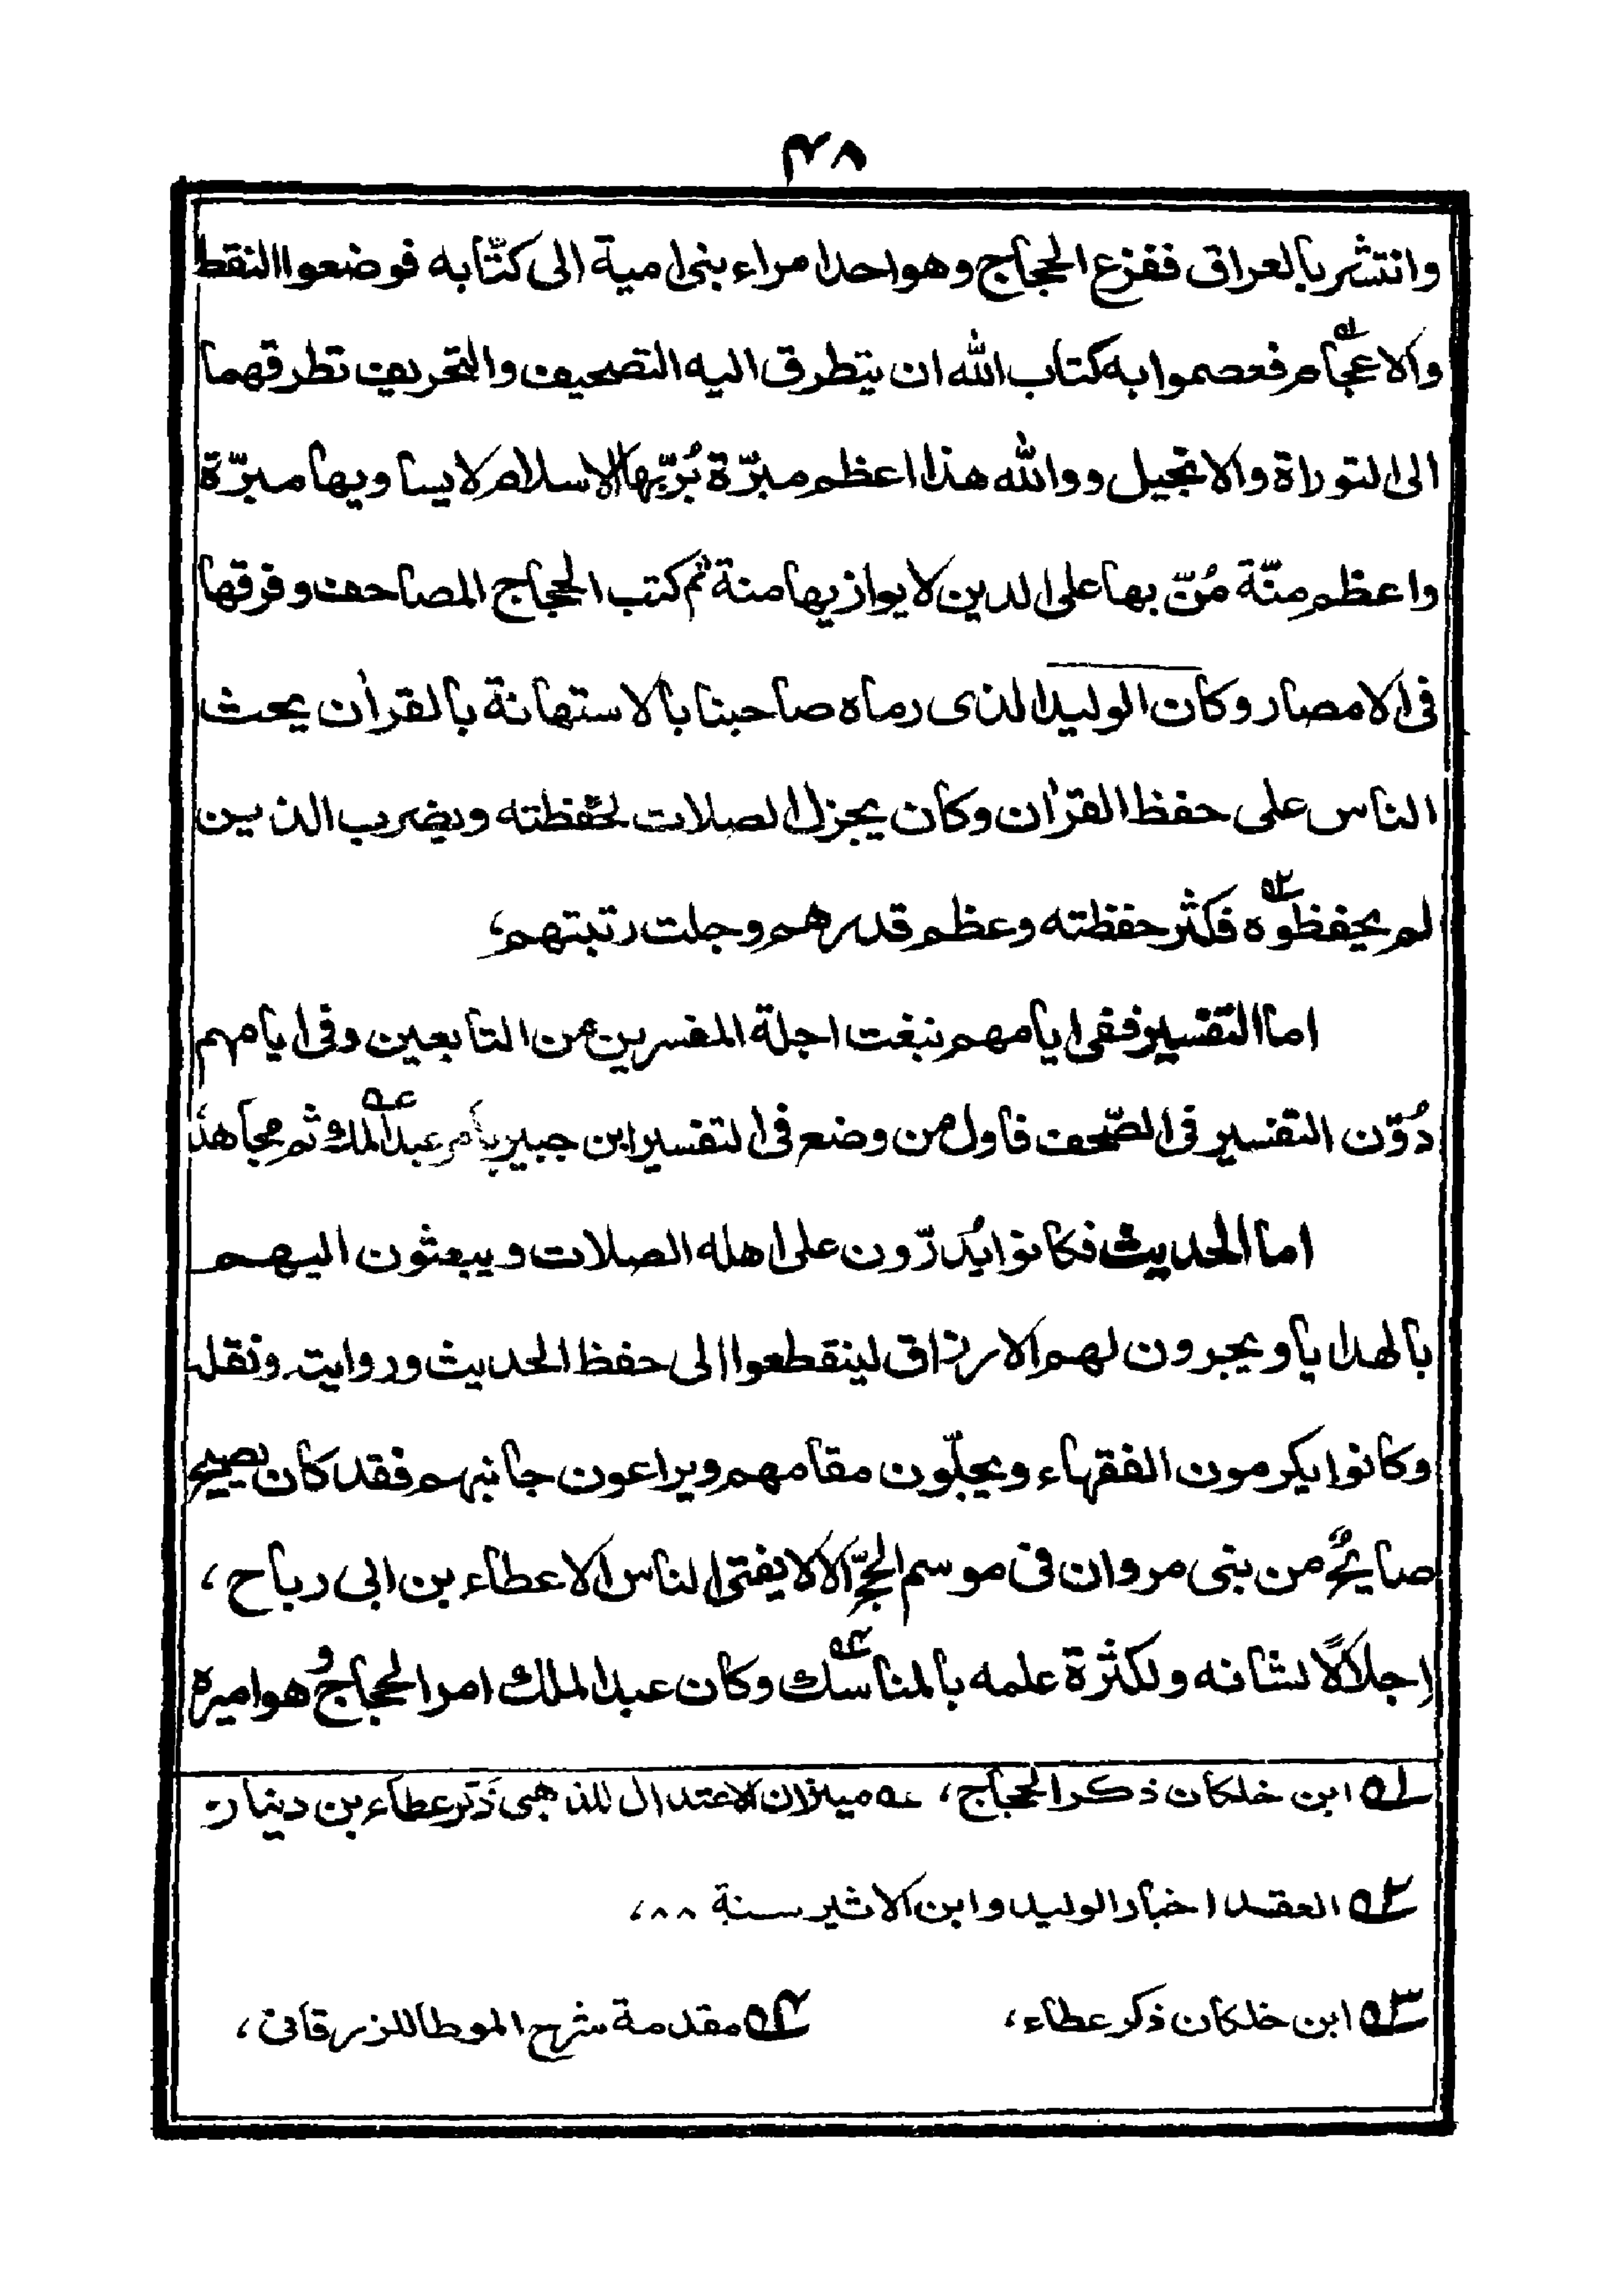 ٤٨
وانتشر بالعراق ففزع الحجاج وهو احد امراء بنى امية الى كتّابه فوضعوا النقط
والاعجام١ فعصموا به كتاب الله ان يتطرق اليه التصحيف والتحريف تطرقهما
الى التوراة والانجيل ووالله هذا اعظم مبرّة بُرّ بها الاسلام لا يساويها مبرّة
واعظم منّة مُنّ بها على الدين لا يوازيها منة ثم كتب الحجاج المصاحف وفرقها
فى الامصار وكان الوليد الذى رماه صاحبنا بالاستهانة بالقرآن يحث
الناس على حفظ القرآن وكان يجزل الصلات لحَفظته ويضرب الذين
لم يحفظوه٢ فكثر حفظته وعظم قدرهم وجلت رتبتهم،
اما التفسير ففى ايامهم نبغت اجلة المفسرين من التابعين وفى ايامهم
دُوّن التفسير فى الصّحف فاول من وضع فى التفسير ابن جبير بأمر عبد الملك عه ثم مجاهد
اما الحديث فكانوا يُدرّون على اهله الصلات ويبعثون اليهم
بالهدايا ويجرون لهم الارزاق لينقطعوا الى حفظ الحديث وروايته ونقله
وكانوا يكرمون الفقهاء ويجلّون مقامهم ويراعون جانبهم فقد كان يصيح
صايحٌ من بنى مروان فى موسم الحجّ الا لا يفتى الناس الا عطاء بن ابى رباح،
اجلالاً لشانه ولكثرة علمه بالمناسك٣ وكان عبد الملك امر الحجاج وهو اميره
١ه ابن خلكان ذكر الحجاج، عه ميزان الاعتدال للذهبى ذكر عطاء بن دينار
٢ه العقد اخبار الوليد وابن الاثير سنة ٨٨،
٣ه ابن خلكان ذكر عطاء، ٤ه مقدمة شرح الموطا للزرقانى،